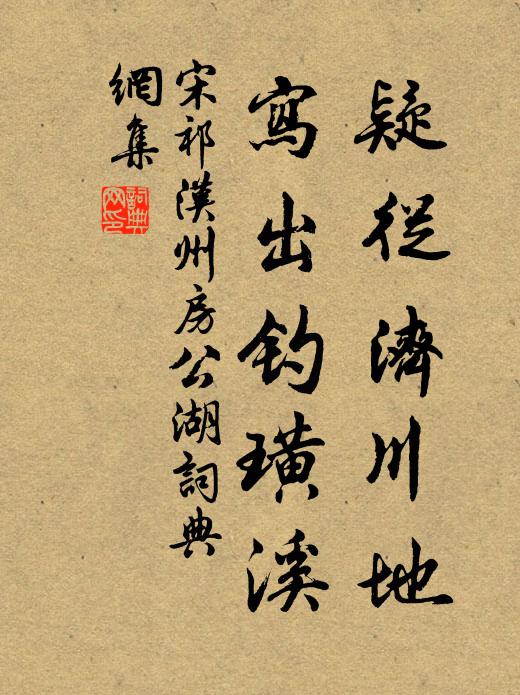 疑從濟川地
寫出釣璜溪
宋祁漢州房公湖詞典
網集
詞典
网印